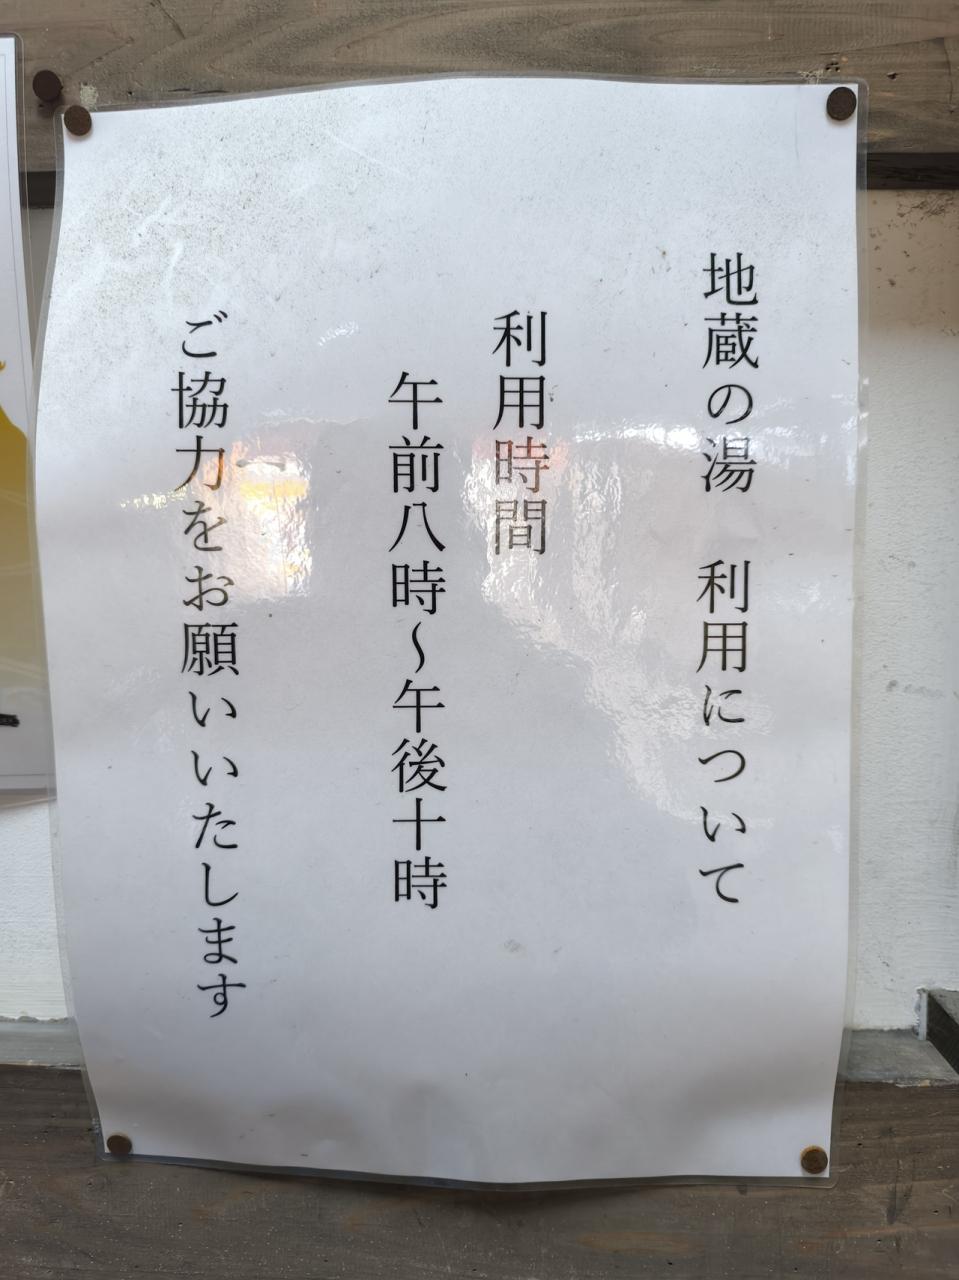 地蔵の湯　利用について
利用時間
午前八時～午後十時
ご協力をお願いいたします